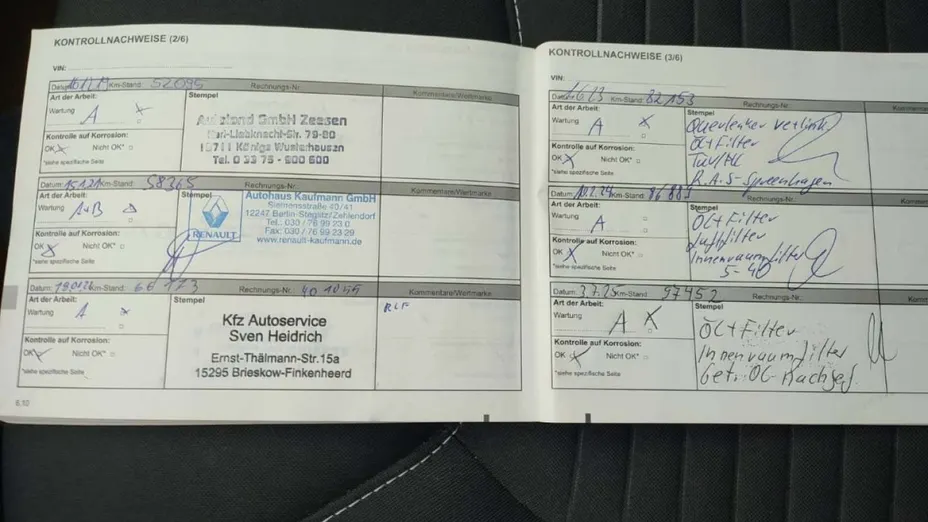 KONTROLLNACHWEISE (2/6)
VIN:
Datum: Km-Stand: 52095 Rechnungs-Nr. Kommentare/Wertmarke
Art der Arbeit: Stempel
Wartung A x
Autoland GmbH Zeesen
Karl-Liebknecht-Str. 79-80
15711 Königs Wusterhausen
Tel. 0 33 75 - 900 600
Kontrolle auf Korrosion:
OK x Nicht OK*
*siehe spezifische Seite
Datum: 15.1.21 Km-Stand: 58365 Rechnungs-Nr. Kommentare/Wertmarke
Art der Arbeit: Stempel
Wartung A+B
RENAULT
Autohaus Kaufmann GmbH
Siemensstraße 40/41
12247 Berlin-Steglitz/Zehlendorf
Tel.: 030 / 76 99 23 0
Fax: 030 / 76 99 23 29
www.renault-kaufmann.de
Kontrolle auf Korrosion:
OK Nicht OK*
*siehe spezifische Seite
Datum: Km-Stand: 66 173 Rechnungs-Nr. Kommentare/Wertmarke
Art der Arbeit: Stempel RLF
Wartung A x
Kfz Autoservice
Sven Heidrich
Ernst-Thälmann-Str.15a
15295 Brieskow-Finkenheerd
Kontrolle auf Korrosion:
OK Nicht OK*
*siehe spezifische Seite
6.10
KONTROLLNACHWEISE (3/6)
VIN:
Datum: Km-Stand: 82 153 Rechnungs-Nr.
Art der Arbeit: Stempel
Wartung A x
Querlenker re+link
Öl+Filter
Tüv/AU
R.A.S-Spreenhagen
Kontrolle auf Korrosion:
OK x Nicht OK*
*siehe spezifische Seite
Datum: 10.2.24 Km-Stand: 86 889 Rechnungs-Nr.
Art der Arbeit: Stempel
Wartung A x
Öl+Filter
Luftfilter
Innenraumfilter
5-40
Kontrolle auf Korrosion:
OK x Nicht OK*
*siehe spezifische Seite
Datum: 3.7.25 Km-Stand: 97452 Rechnungs-Nr.
Art der Arbeit: Stempel
Wartung A x
Öl+Filter
Innenraumfilter
Getr. Öl-nachgef.
Kontrolle auf Korrosion:
OK x Nicht OK*
*siehe spezifische Seite